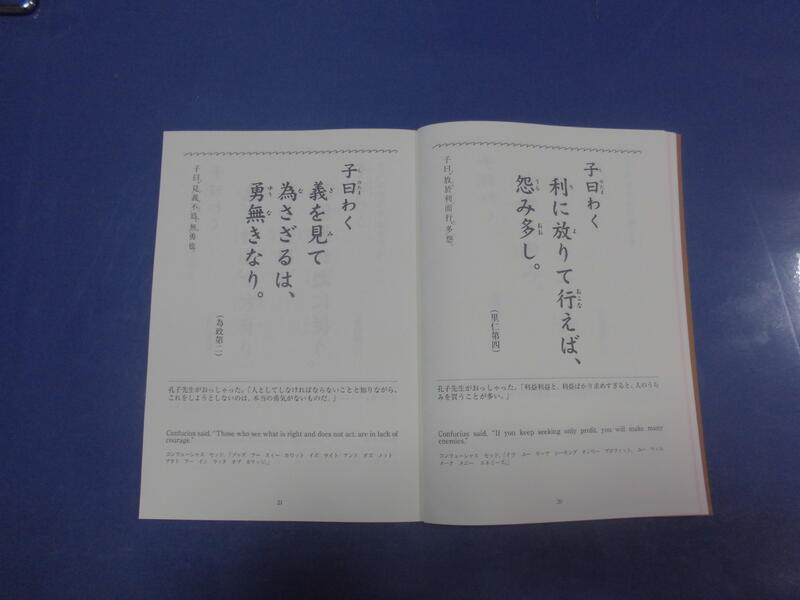 子曰わく
利に放りて行えば、
怨み多し。
(里仁第四)
子曰、放於利而行、多怨。
孔子先生がおっしゃった。「利益利益と、利益ばかり求めすぎると、人のうら
みを買うことが多い。」
Confucius said, "If you keep seeking only profit, you will make many
enemies."
コンフューシャス セッド、「イフ ユー キープ シーキング オンリー プロフィット、ユー ウィル
メーク メニー エネミーズ。」
20
子曰わく
義を見て
為さざるは、
勇無きなり。
(為政第二)
子曰、見義不爲、無勇也。
孔子先生がおっしゃった。「人としてしなければならないことと知りながら、
これをしようとしないのは、本当の勇気がないものだ。」
Confucius said, "Those who see what is right and does not act, are in lack of
courage."
コンフューシャス セッド、「ゾッズ フー スィー ホワット イズ ライト アンド ダズ ノット
アクト アー イン ラック オブ カレッジ。」
21